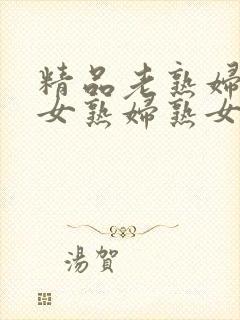 精品老熟婦
女熟婦熟女
湯賀